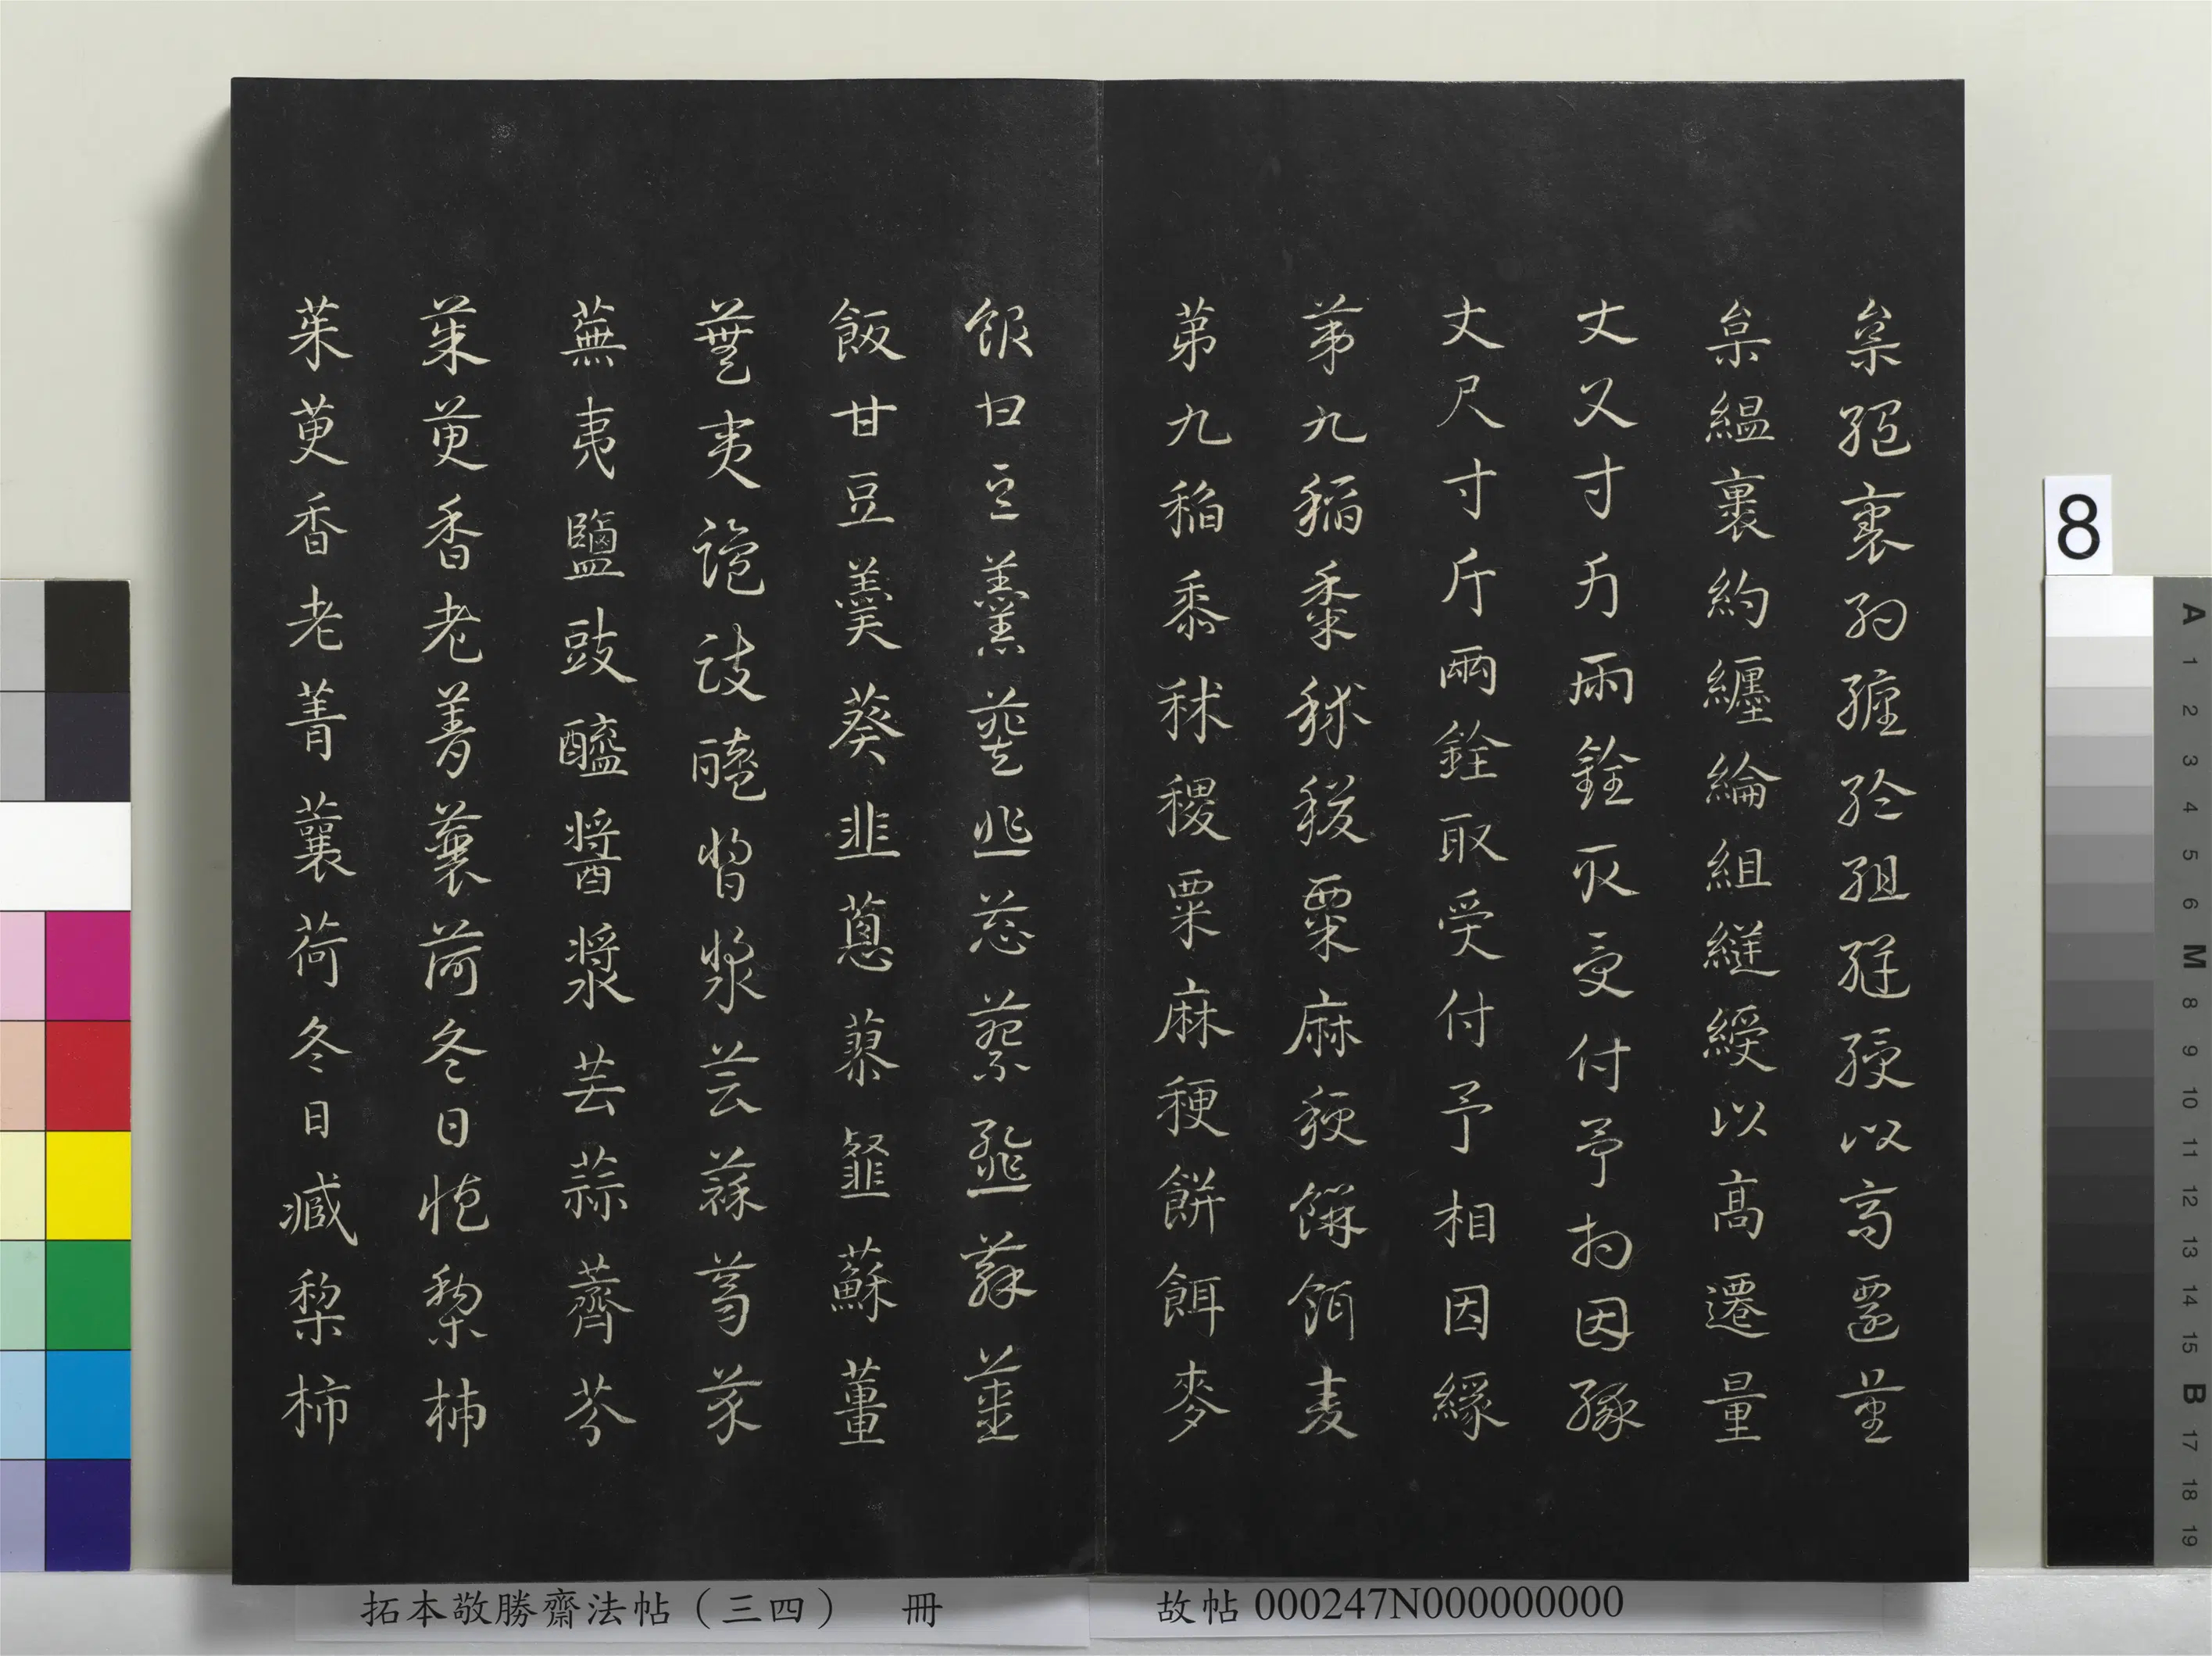 枲縕裹約纏綸組縌綬以高遷量
枲縕裹約纏綸組縌綬以高遷量
丈尺寸斤兩銓取受付予相因緣
丈尺寸斤兩銓取受付予相因緣
第九稻黍秫稷粟麻稉餅餌麥
第九稻黍秫稷粟麻稉餅餌麥
飯甘豆羹葵韭蔥蓼韰蘇薑
飯甘豆羹葵韭蔥蓼韰蘇薑
蕪夷鹽豉醯醬漿芸蒜薺芥
蕪夷鹽豉醯醬漿芸蒜薺芥
茱萸香老菁蘘荷冬日臧棃柿
茱萸香老菁蘘荷冬日臧棃柿
拓本敬勝齋法帖(三四) 冊
故帖000247N000000000
8
A 1 2 3 4 5 6 M 8 9 10 11 12 13 14 15 B 17 18 19